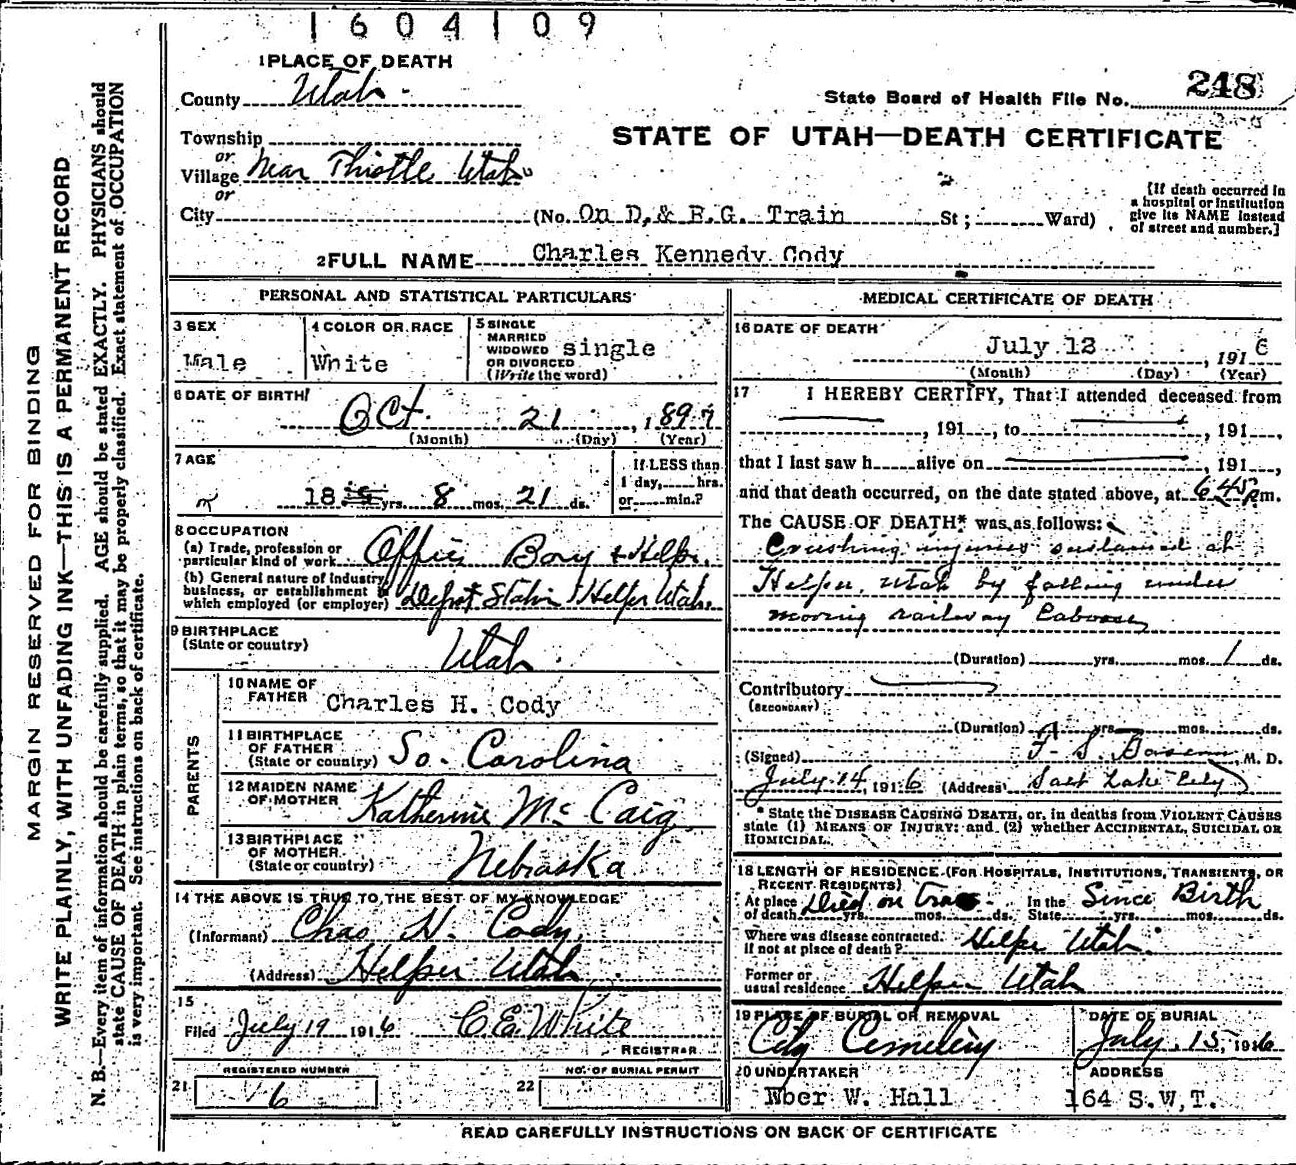 1604109
1 PLACE OF DEATH
County Utah
State Board of Health File No. 248
Township
STATE OF UTAH—DEATH CERTIFICATE
or
Village Near Thistle Utah
or
City (No. On D.& R.G. Train St; Ward)
[If death occurred in
a hospital or institution
give its NAME instead
of street and number.]
2 FULL NAME Charles Kennedy Cody
PERSONAL AND STATISTICAL PARTICULARS
3 SEX
Male
4 COLOR OR RACE
White
5 SINGLE
MARRIED
WIDOWED
OR DIVORCED
(Write the word)
single
6 DATE OF BIRTH
Oct. 21, 1897
(Month) (Day) (Year)
7 AGE
18 yrs. 8 mos. 21 ds.
If LESS than
1 day, hrs.
or min.?
8 OCCUPATION
(a) Trade, profession or
particular kind of work Office Boy & Helper.
(b) General nature of industry,
business, or establishment in
which employed (or employer) Depot Station Helper Utah.
9 BIRTHPLACE
(State or country) Utah
PARENTS
10 NAME OF
FATHER Charles H. Cody
11 BIRTHPLACE
OF FATHER
(State or country) So. Carolina
12 MAIDEN NAME
OF MOTHER Katherine McCaig
13 BIRTHPLACE
OF MOTHER
(State or country) Nebraska
14 THE ABOVE IS TRUE TO THE BEST OF MY KNOWLEDGE
(Informant) Chas H. Cody
(Address) Helper Utah
15
Filed July 19 1916 C.E. White
REGISTRAR
21 REGISTERED NUMBER
6
22 NO. OF BURIAL PERMIT
MEDICAL CERTIFICATE OF DEATH
16 DATE OF DEATH
July 12, 1916
(Month) (Day) (Year)
17 I HEREBY CERTIFY, That I attended deceased from
, 191 , to , 191 ,
that I last saw h alive on , 191 ,
and that death occurred, on the date stated above, at 6 45 P.m.
The CAUSE OF DEATH* was as follows:
Crushing injuries sustained at
Helper, Utah by falling under
moving railway Caboose
(Duration) yrs. mos. 1 ds.
Contributory
(SECONDARY)
(Duration) yrs. mos. ds.
(Signed) F. S. , M. D.
July 14, 1916 (Address) Salt Lake City
* State the DISEASE CAUSING DEATH, or, in deaths from VIOLENT CAUSES
state (1) MEANS OF INJURY; and (2) whether ACCIDENTAL, SUICIDAL OR
HOMICIDAL.
18 LENGTH OF RESIDENCE (FOR HOSPITALS, INSTITUTIONS, TRANSIENTS, OR
RECENT RESIDENTS)
At place
of death Died on yrs. mos. ds.
In the
State Since Birth yrs. mos. ds.
Where was disease contracted,
if not at place of death? Helper Utah
Former or
usual residence Helper Utah
19 PLACE OF BURIAL OR REMOVAL
City Cemetery
DATE OF BURIAL
July 15, 1916
20 UNDERTAKER
Eber W. Hall
ADDRESS
164 S.W.T.
READ CAREFULLY INSTRUCTIONS ON BACK OF CERTIFICATE
MARGIN RESERVED FOR BINDING
WRITE PLAINLY, WITH UNFADING INK—THIS IS A PERMANENT RECORD
N. B.—Every item of information should be carefully supplied. AGE should be stated EXACTLY. PHYSICIANS should
state CAUSE OF DEATH in plain terms, so that it may be properly classified. Exact statement of OCCUPATION
is very important. See instructions on back of certificate.